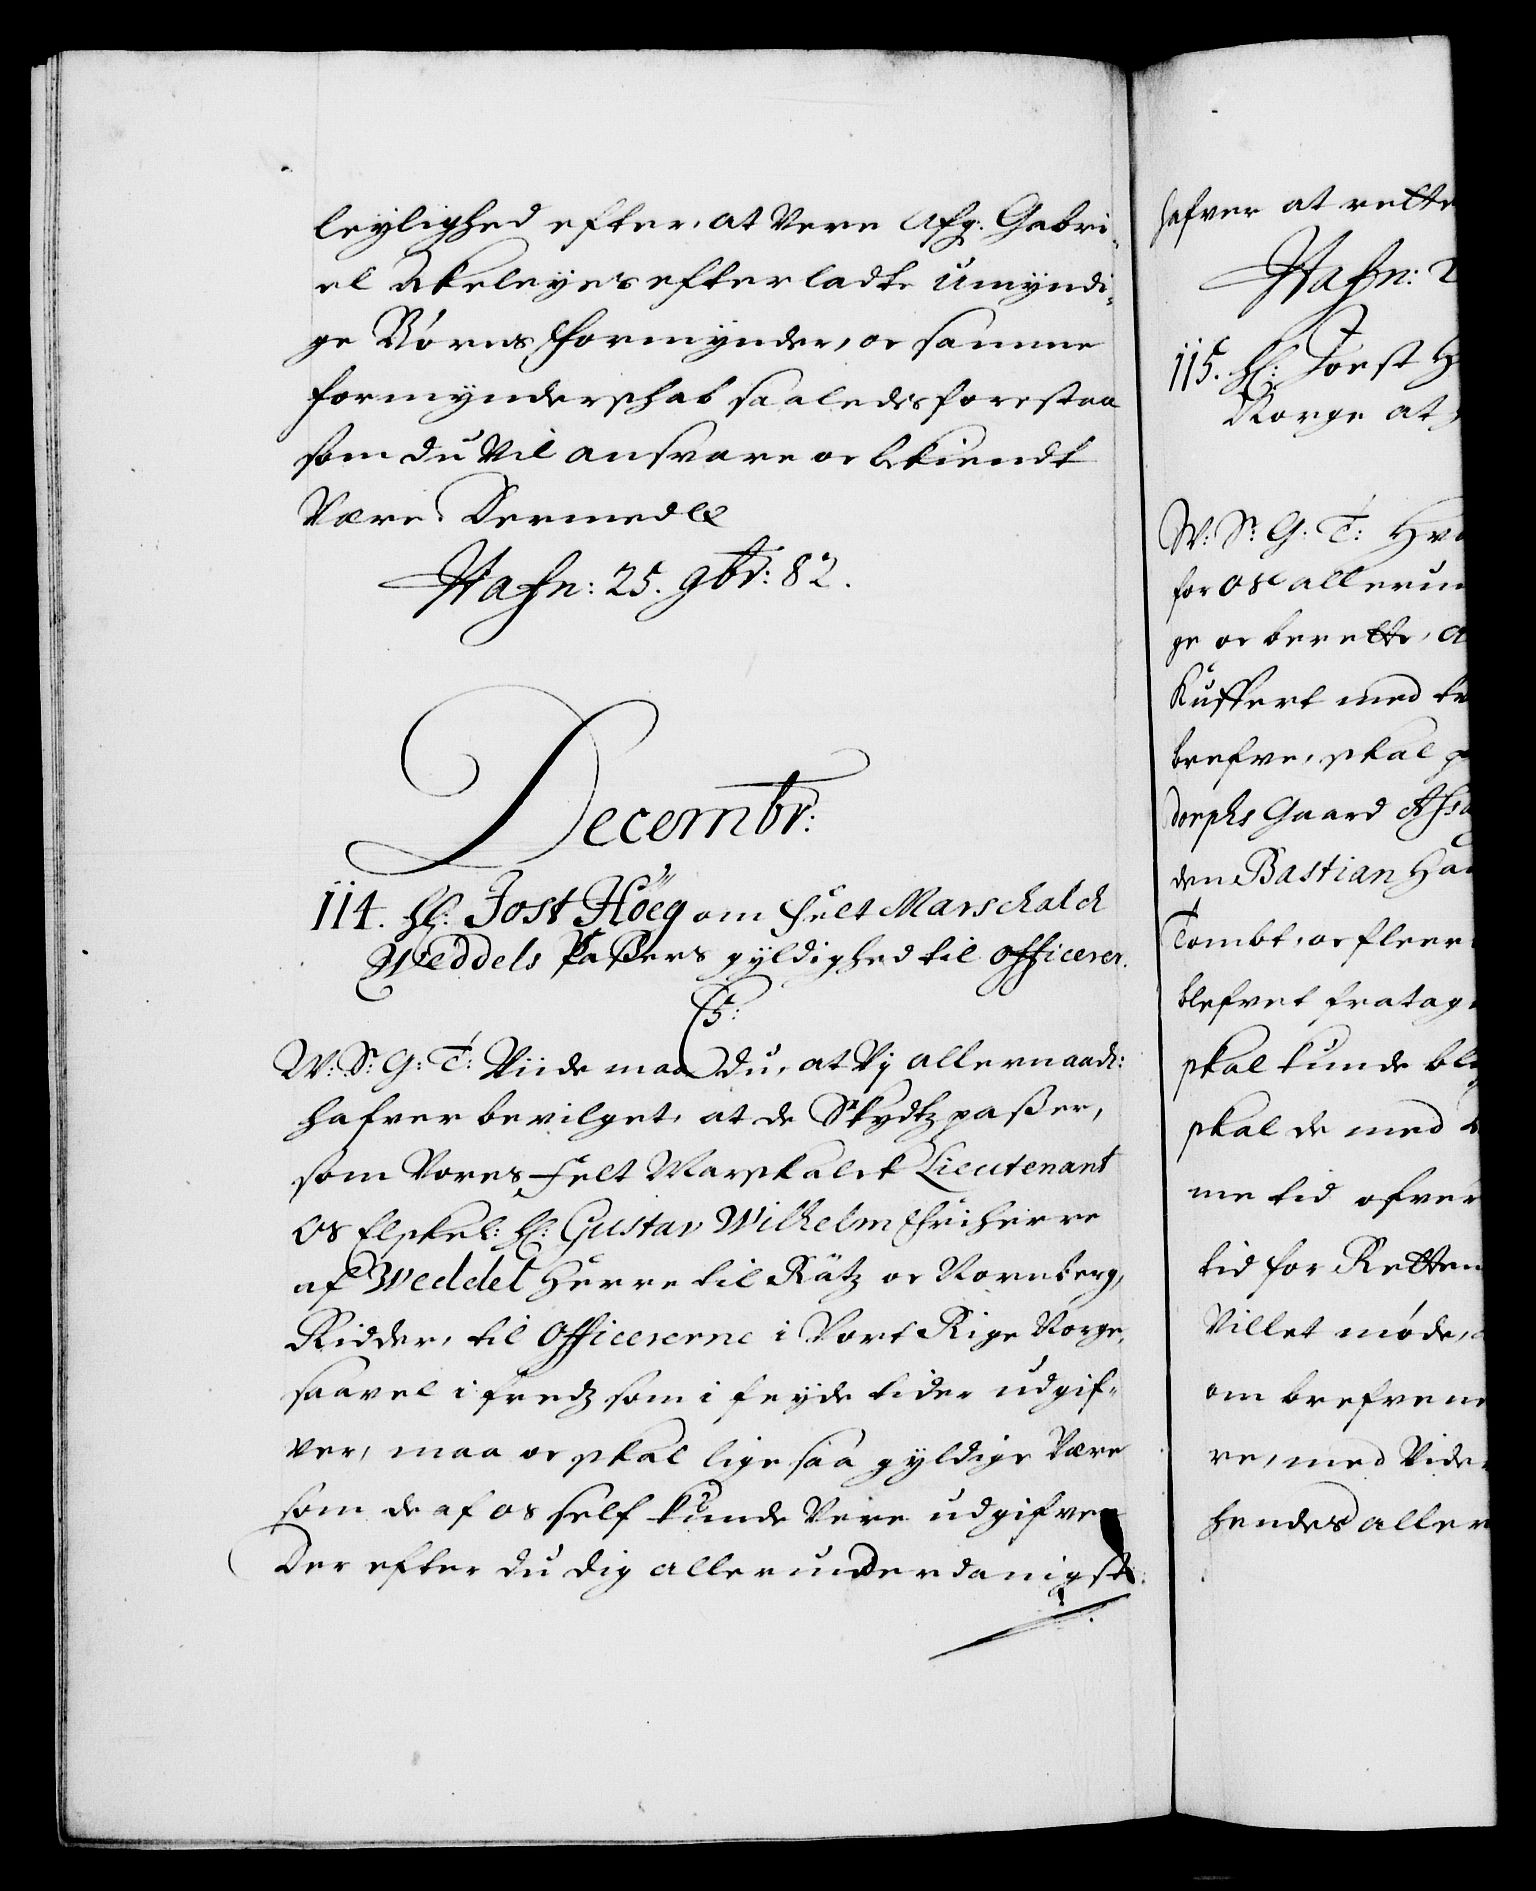 leylighed efter, at Vere Afg: Gabri-
el Akeleyes efterladte umyndi-
ge Børns Formynder, oc samme
formynderschab saaledis forestaa
som du Vil ansvare oc bekiendt
Være. Dermed &c
Hafn: 25. 9br: 82.
Decembr:
114. H: Jost Höeg om Felt Marschalck
Weddels Passers gyldighed til Officerer.
C5:
W: Sr: G: T: Viide maa du, at Vj allernaadt:
hafver bevilget, at de Skydtz passer,
som Vores Felt Marskalck Lieutenant
Os Elskel: H: Gustav Wilhelm Friherre
af Weddel Herre til Rätz oc Nornberg,
Ridder, til Officererne i Vort Rige Norge,
saavel i fredz som i feyde tider udgif-
ver, maa oc skal lige saa gyldige Være
som de af os self kunde Vere udgifven
Der efter du dig allerunderdanigst:
hafver at rette
Hafn: 2
115. H: Joest H
Norge at
W: Sr: G: T: Hv
for os allerun
ge oc berette, a
Kuffert med
brefve, skal
dorphs Gaard
den Bastian Han
Tombt, oc fleer
blefvet fratag
skal kunde bl
skal de med
me tid ofver
tid for Retten
Villet møde,
om brefven
re, med Vider
hendes aller